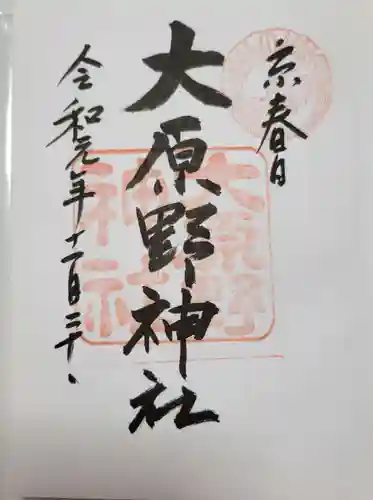 京春日
大原野神社
令和元年十一月三十日
大原野
神社